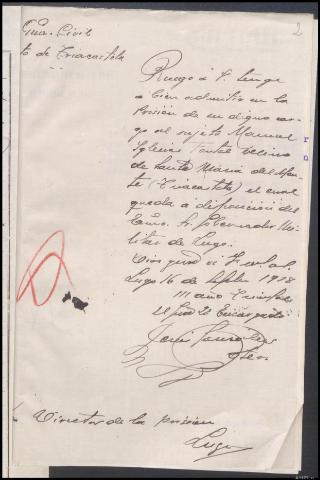 2
Civil
de Triacastela
Ruego á V. tenga
a bien admitir en la
Prisión de su digno car-
go al sujeto Manuel
Iglesias vecino
de Santa María del Mon-
te (Triacastela) el cual
queda a disposición del
Excmo. Sr. Gobernador Mi-
litar de Lugo.
Dios guarde á V. m. a.
Lugo 16 de
III año Triunfal
El Encargado
Director de la prisión
Lugo